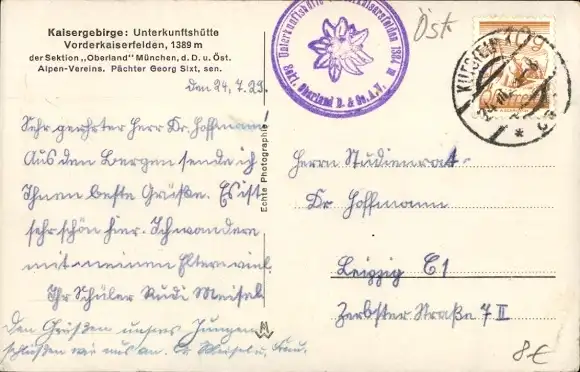 Kaisergebirge: Unterkunftshütte
Vorderkaiserfelden, 1389 m
der Sektion „Oberland" München, d. D. u. Öst.
Alpen-Vereins. Pächter Georg Sixt, sen.
den 24.7.29.
Sehr geehrter Herr Dr. Hoffmann
Aus den Bergen sende ich
Ihnen beste Grüße. Es ist
sehr schön hier. Ich wandere
mit meinen Eltern viel.
Ihr Schüler Rudi Meisel
Den Grüßen unseres Jungen
schließen wir uns an. Dr. Meisel u. Frau.
Echte Photographie
Unterkunftshütte Vorderkaiserfelden 1384 m
Sekt. Oberland D. & Oe. A.V.
Öst.
10 g
KUFSTEIN
Herrn Studienrat
Dr. Hoffmann
Leipzig C1
Zerbster Straße 7 II
8€